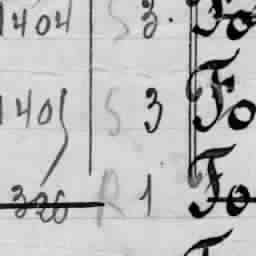 1404 S 3. Fo
1405 S 3 Fo
326 R 1 Fo